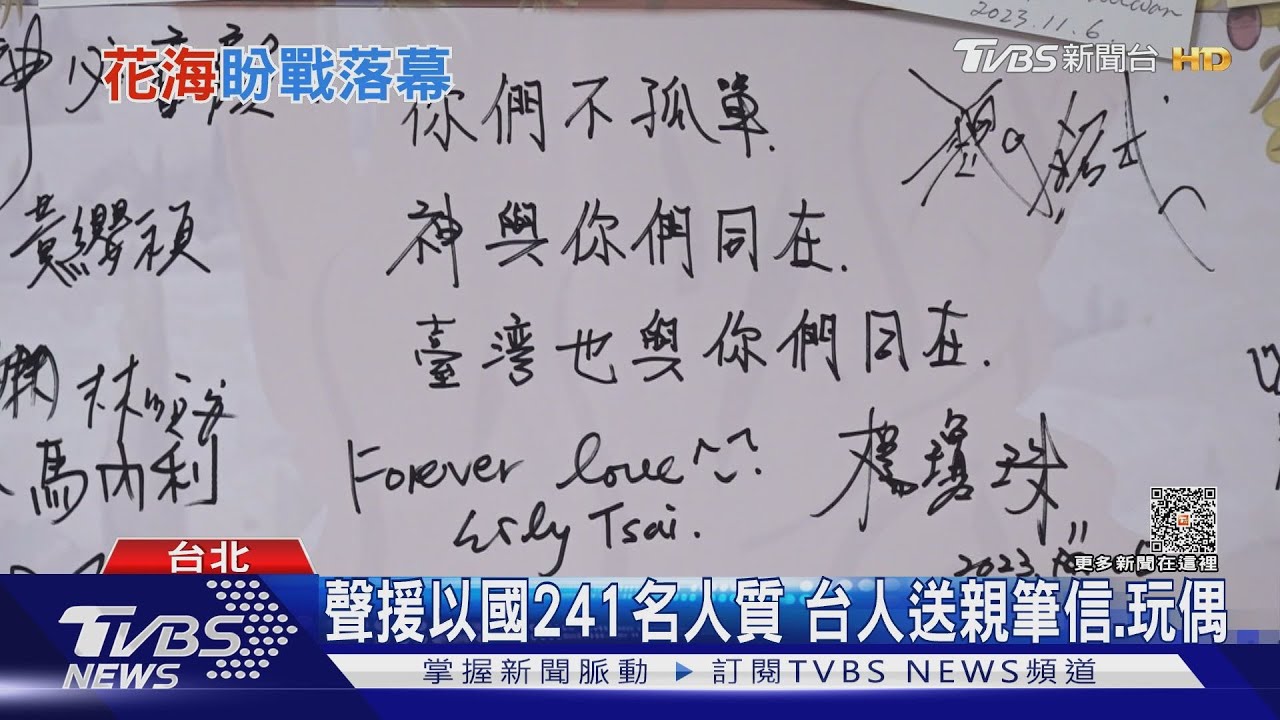 2023.11.6
TVBS新聞台 HD
花海盼戰落幕
你們不孤單.
神與你們同在.
黃纓禎
臺湾也與你們同在.
馬內利
Forever love
Tsai.
楊瓊珠
2023
更多新聞在這裡
台北
TVBS NEWS
聲援以國241名人質 台人送親筆信.玩偶
掌握新聞脈動 ▶ 訂閱TVBS NEWS頻道